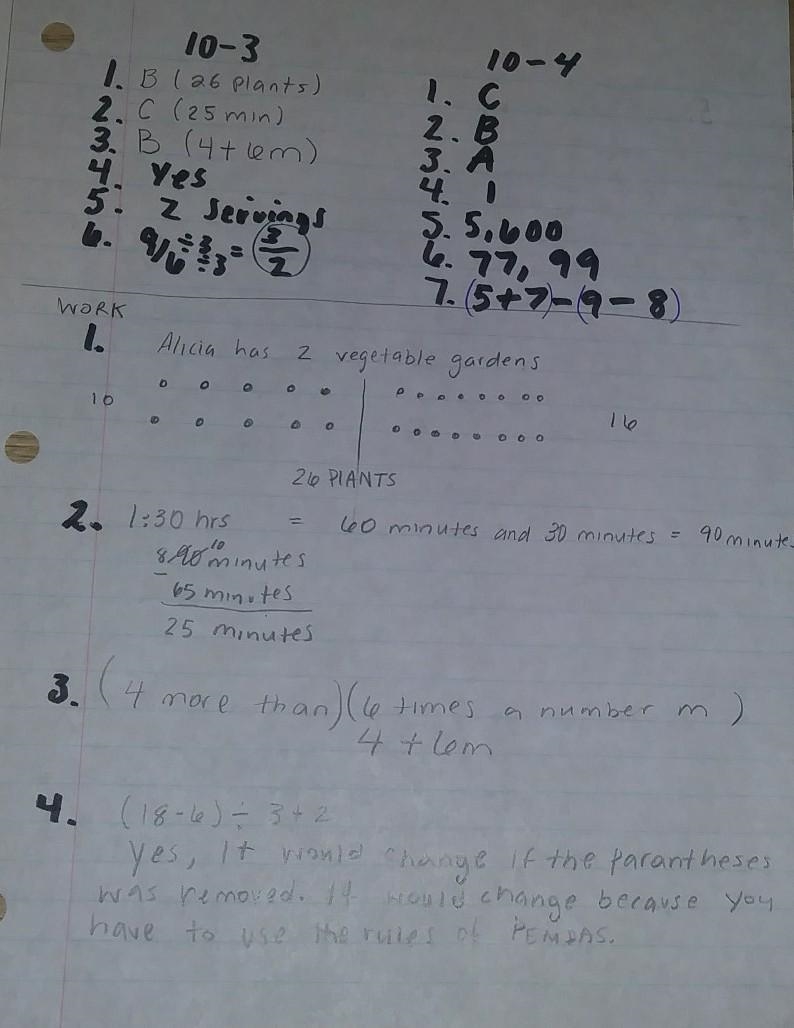 10-3
1. B (26 plants)
2. C (25 min)
3. B (4+6m)
4. Yes
5. 2 Servings
6. 9/6 ÷3 ÷3 = 3/2
10-4
1. C
2. B
3. A
4. 1
5. 5,600
6. 77, 99
7. (5+7)-(9-8)
WORK
1. Alicia has 2 vegetable gardens
10
16
26 PLANTS
2. 1:30 hrs = 60 minutes and 30 minutes = 90 minute
8 90 10 minutes
- 65 minutes
25 minutes
3. (4 more than)(6 times a number m)
4 + 6m
4. (18-6) ÷ 3+2
Yes, It would change if the parantheses
was removed. It would change because you
have to use the rules of PEMDAS.